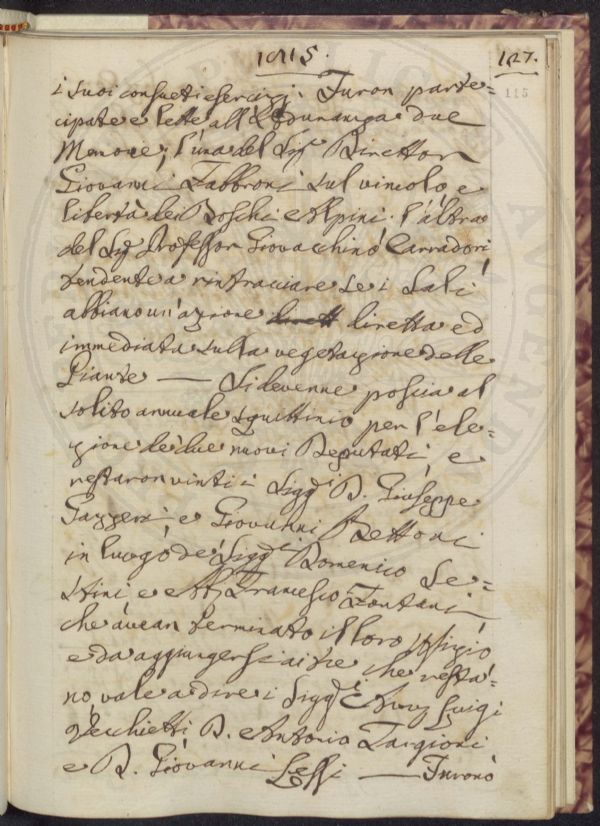 1815.
127.
115
i suoi consueti esercizzj. Furon parte=
cipate e lette all'Adunanza due
Memorie; l'una del Sigr. Direttor
Giovanni Fabbroni sul vincolo, e
libertà dei Boschi Alpini. l'altra
del Sig. Professor Giovacchino Carradori
tendente a rintracciare se i Sali
abbiano un'azione diretta ed
immediata sulla vegetazione delle
Piante — Si devenne poscia al
solito annuale squittinio per l'ele=
zione de' due nuovi Deputati, e
restaron vinti i Sigg.i D. Giuseppe
Gazzeri, e Giovanni Bettoni
in luogo de' Sigg.i Domenico Se=
stini e Ab. Francesco Fontani
che avean terminato il loro Ofizio
e da aggiungersi ai tre che resta=
no, vale a dire i Sigg.i Avv. Luigi
Vecchietti, D. Antonio Targioni
e D. Giovanni Lessi — Furono